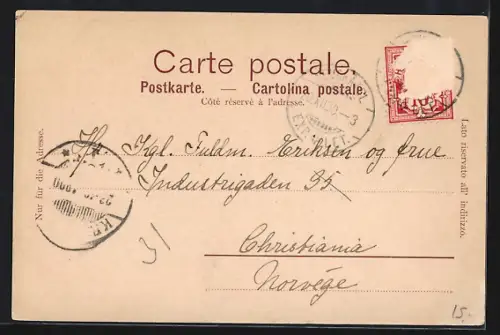 Carte postale.
Postkarte. — Cartolina postale.
Côté réservé à l'adresse.
Nur für die Adresse.
Lato riservato all' indirizzo.
Hr. Kgl. Fuldm. Eriksen og frue
Industrigaden 35
Christiania
Norvége
31
15.